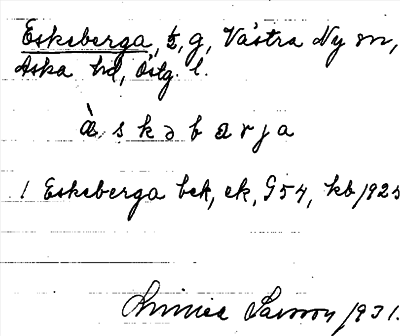 Eskeberga, g, Västra Ny sn,
Aska hd, Östg. l.
æ̀ s k ə b a r j a
1 Eskeberga bck, ek, G54, kb 1925
1931.